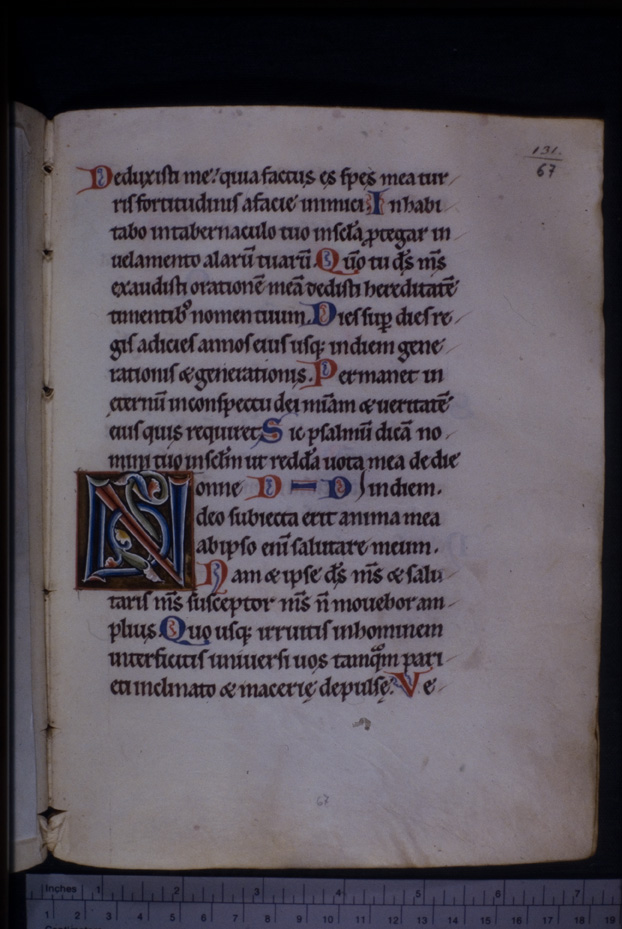 131.
67
Deduxisti me: quia factus es spes mea tur
ris fortitudinis a facie inimici Inhabi
tabo in tabernaculo tuo in scl̃a ꝓtegar in
uelamento alarũ tuarũ. Qm̃o tu d̃s m̃s
exaudisti orationẽ meã dedisti hereditatẽ
timentib; nomen tuum. Dies sup̱ dies re
gis adicies annos eius usq; in diem gene
rationis & generationis. Permanet in
eternũ in conspectu dei m̃iam & ueritatẽ
eius quis requiret Sic psalmũ dicã no
mini tuo in scl̃m ut reddã uota mea de die
in diem.
Nonne D D
deo subiecta erit anima mea
ab ipso eni̅ salutare meum.
Nam & ipse d̃s m̃s & salu
taris m̃s susceptor m̃s ñ mouebor am
plius. Quo usq; irruitis in hominem
interficitis uniuersi uos tamq̃m pari
eti inclinato & macerię depulsę: Ve
67
Inches 1 2 3 4 5 6 7
1 2 3 4 5 6 7 8 9 10 11 12 13 14 15 16 17 18 19